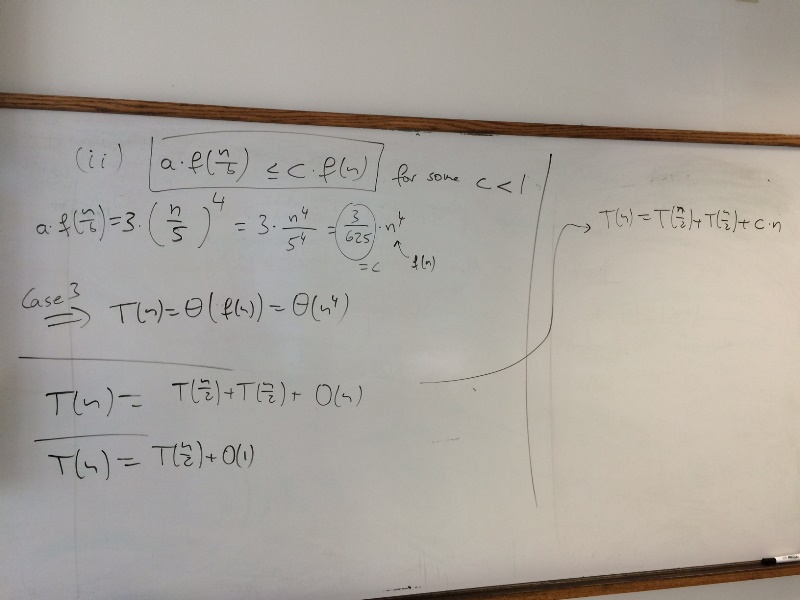 (ii) a·f(n/5) ≤ c·f(n) for some c<1
a·f(n/5)=3·(n/5)^4 = 3·n^4/5^4 = (3/625)·n^4
=c f(n)
Case 3 ⇒ T(n)=Θ(f(n))=Θ(n^4)
T(n)= T(n/2)+T(n/2)+ O(n)
T(n)= T(n/2)+O(1)
T(n)=T(n/2)+T(n/2)+c·n